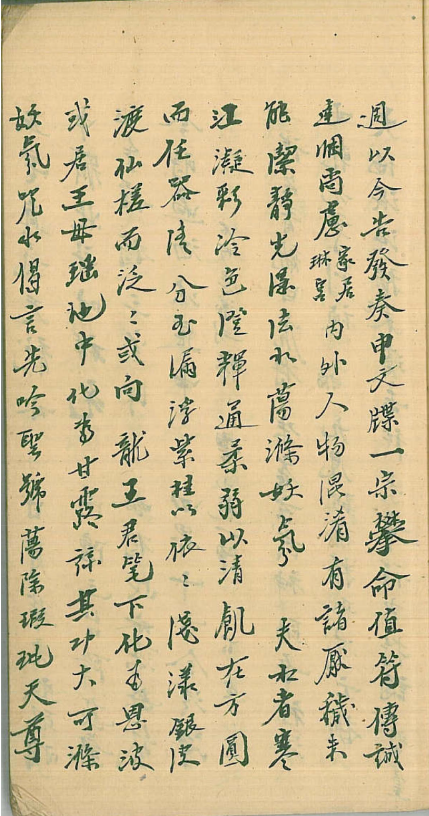 週以今告發奏申文牒一宗攀命值符傳誠
達悃尚慮家居琳宮內外人物混淆有諸厭穢未
能潔靜光瀑法水蕩滌妖氛 夫水者寒
江凝彩冷色澄輝通柔弱以清飢在方圓
而任器清分玉漏浮紫桂以依〻淺漾銀
渡仙槎而泛〻或向龍王君笔下化為恩波
或居王母瑤池中化為甘露詠其功大可滌
妖氛咒水偈言先吟聖號蕩除瑕玼天尊